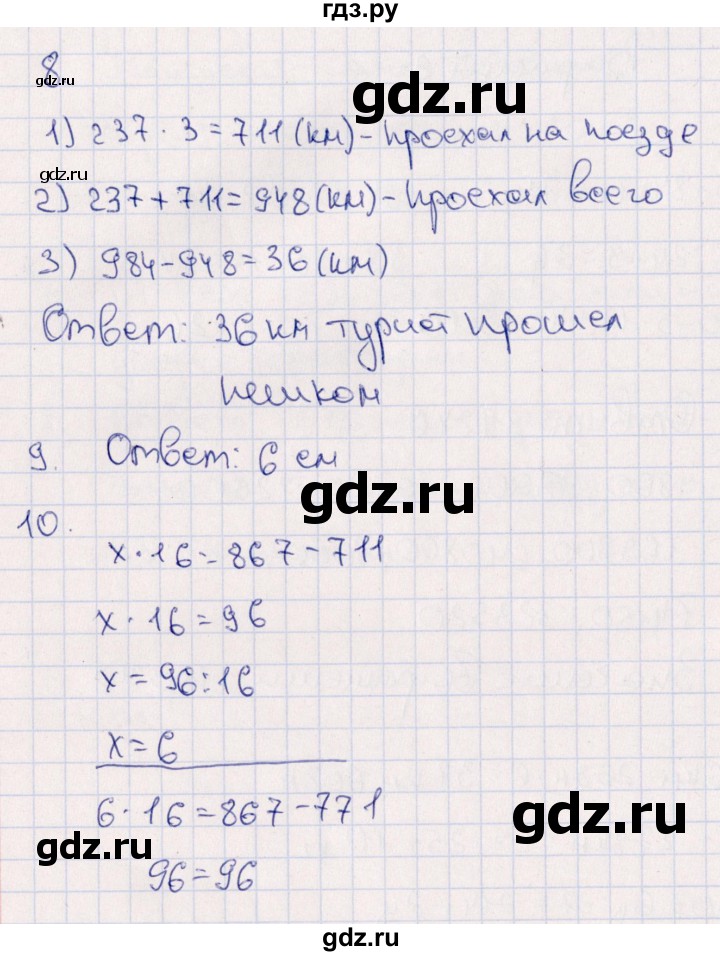 гдз.ру
8
gdz.ru
gdz.ru
1) 237 · 3 = 711 (км) - проехал на поезде
gdz.ru
2) 237 + 711 = 948 (км) - проехал всего
3) 984 - 948 = 36 (км)
Ответ: 36 км турист прошел
пешком
9. Ответ: 6 см
gdz.ru
10.
x · 16 = 867 - 711
x · 16 = 96
x = 96 : 16
x = 6
6 · 16 = 867 - 771
gdz.ru
gdz.ru
96 = 96
gdz.ru